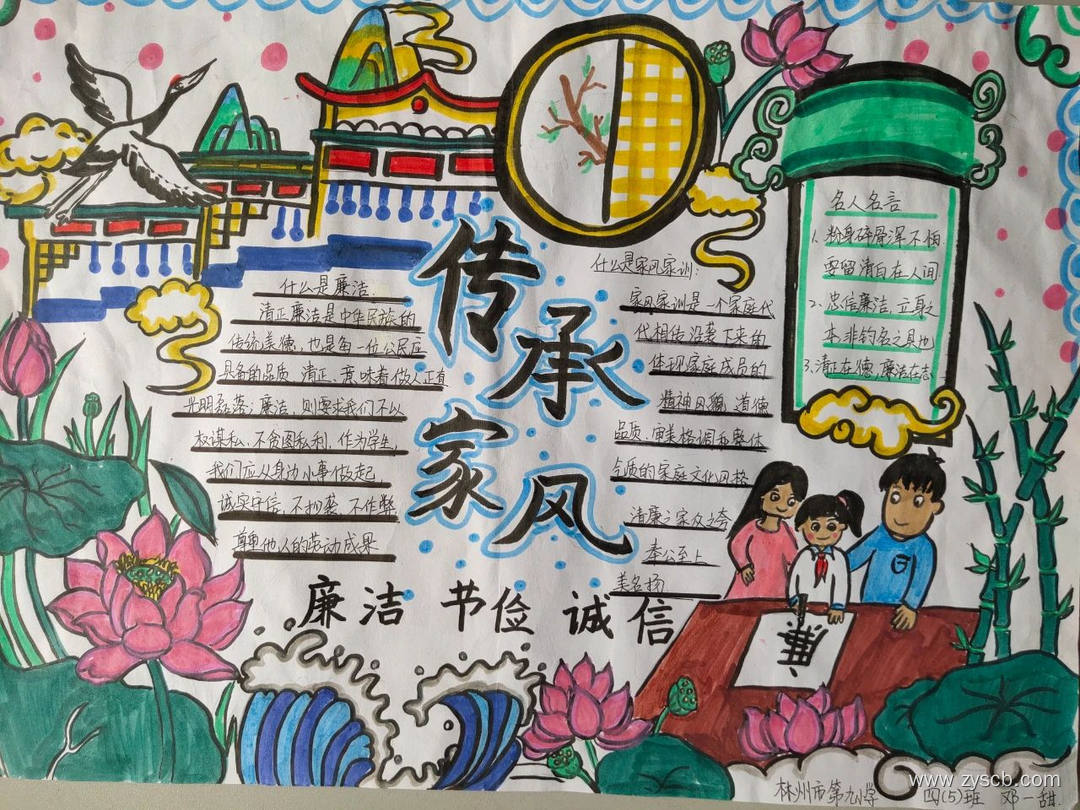 传承家风
什么是廉洁
清正廉洁是中华民族的
传统美德，也是每一位公民应
具备的品质，清正、意味着做人正直
光明磊落；廉洁，则要求我们不以
权谋私、不贪图私利，作为学生，
我们应从身边小事做起
诚实守信，不抄袭，不作弊
尊重他人的劳动成果
什么是家风家训：
家风家训是一个家庭代
代相传沿袭下来的
体现家庭成员的
精神风貌、道德
品质、审美格调和整体
气质的家庭文化风格
清廉之家众之夸
奉公至上
美名扬
名人名言
1. 粉身碎骨浑不怕
要留清白在人间
2. 忠信廉洁，立身之
本，非钓名之具也
3. 清正在德，廉洁在志
廉洁 书俭 诚信
廉
林州市第九小学 四(5)班 邓一甜
www.zyscb.com